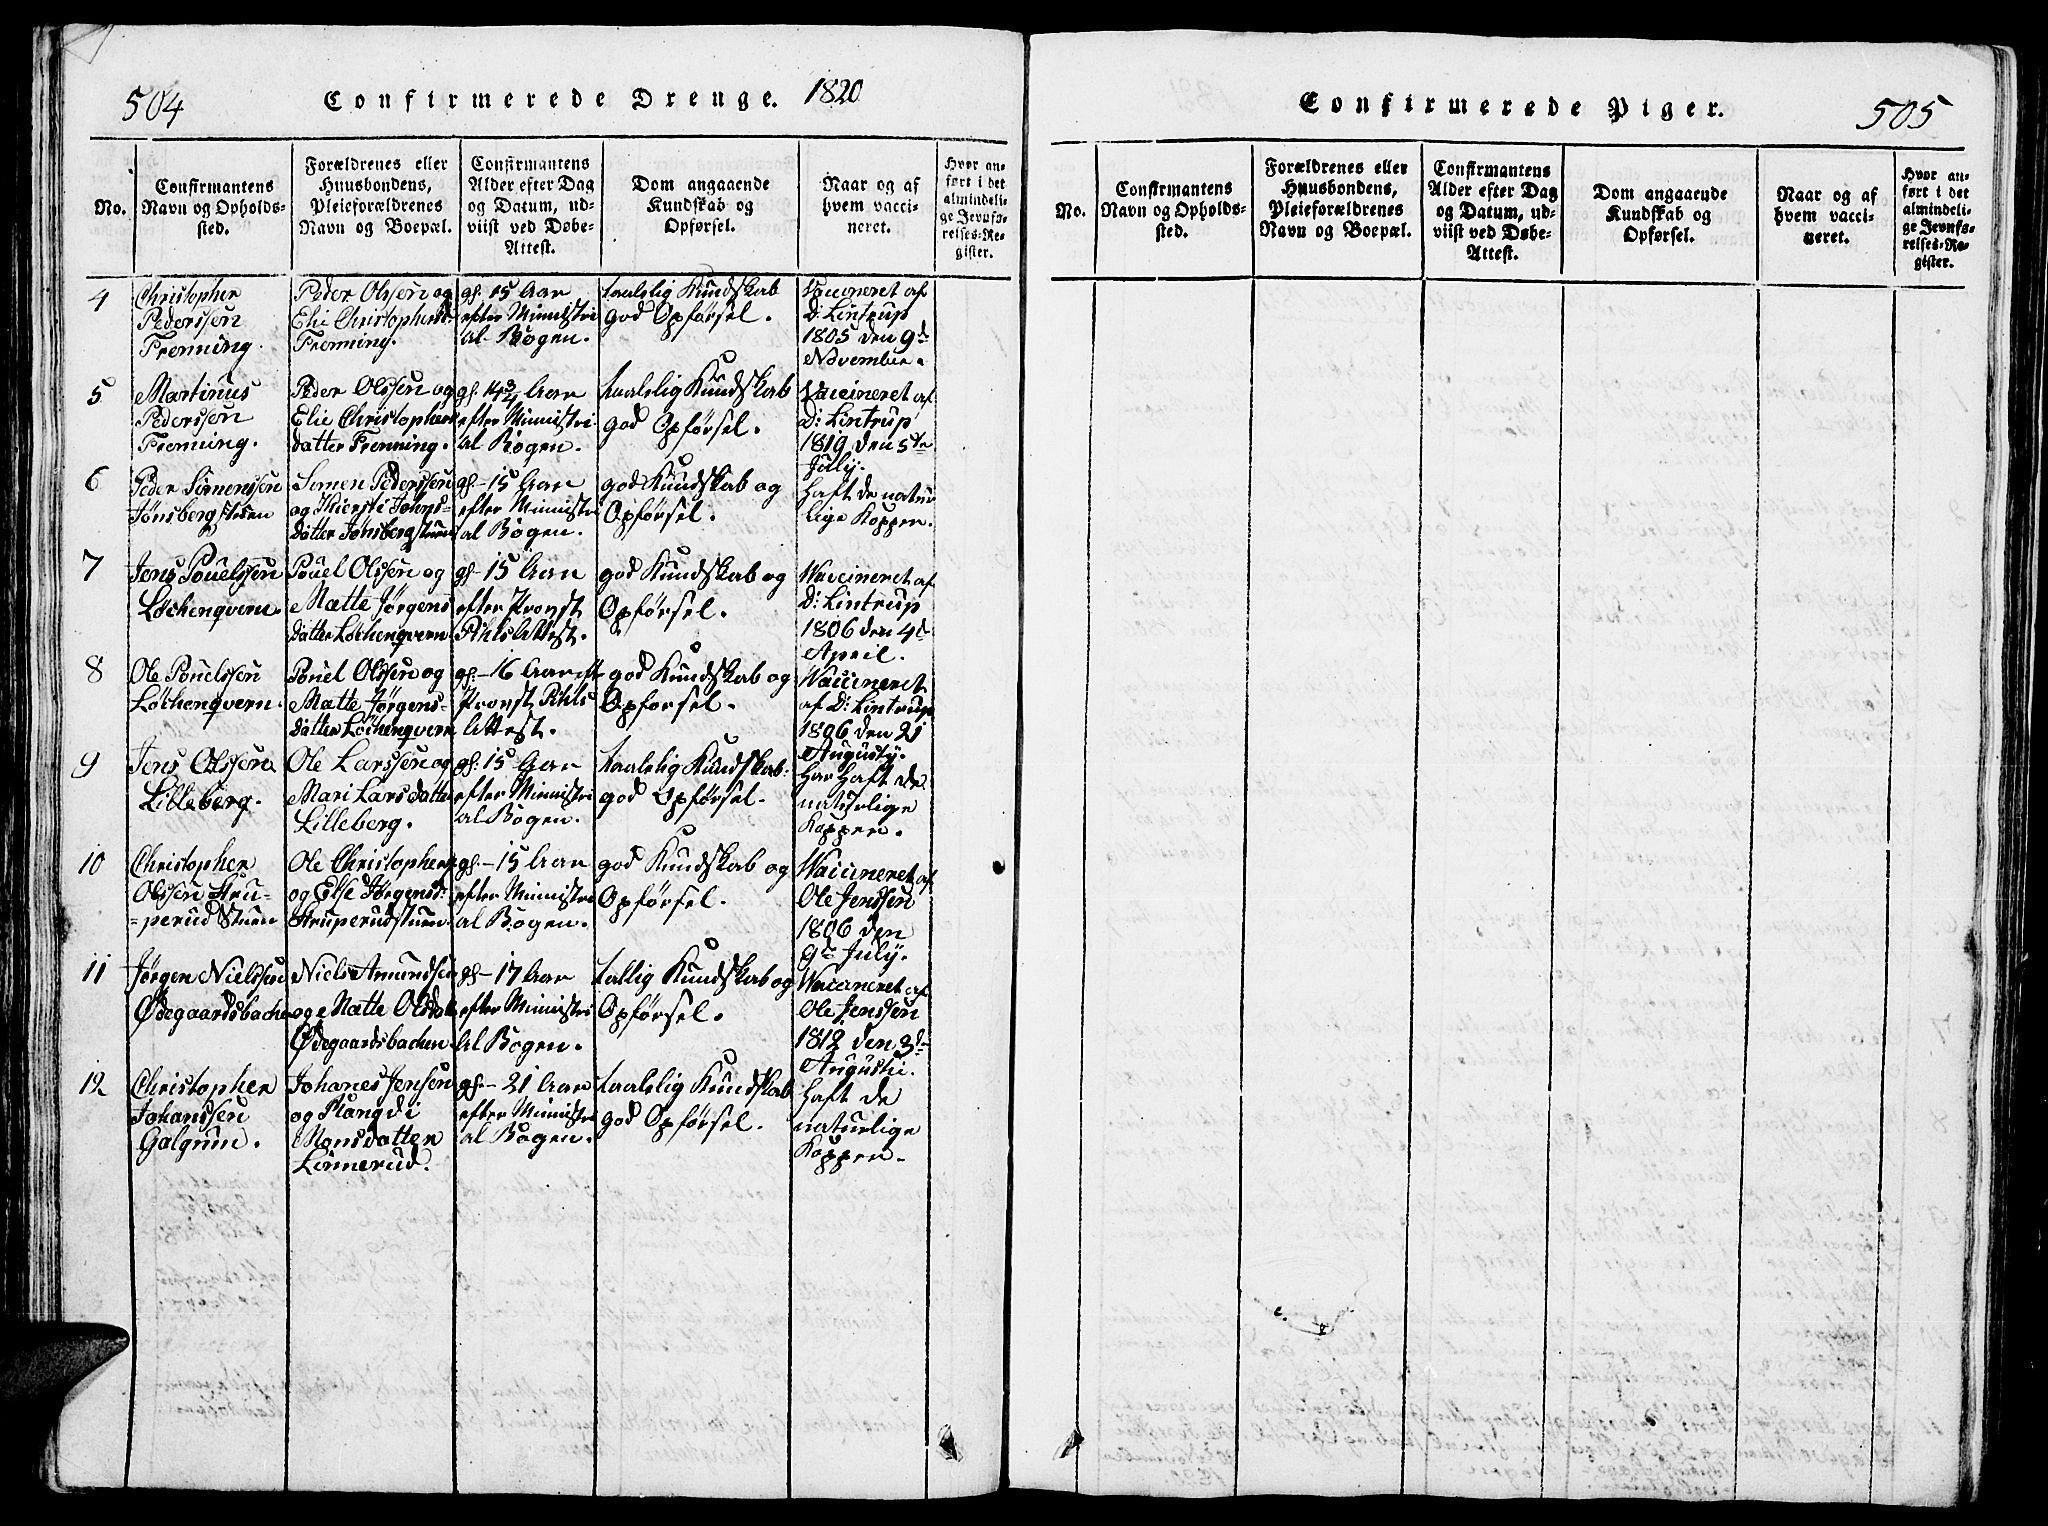 504
Confirmerede Drenge. 1820
No.
Confirmantens
Navn og Opholds-
sted.
Forældrenes eller
Huusbondens,
Pleieforældrenes
Navn og Boepæl.
Confirmantens
Alder efter Dag
og Datum, ud-
viist ved Døbe-
Attest.
Dom angaaende
Kundskab og
Opførsel.
Naar og af
hvem vacci-
neret.
Hvor an-
ført i det
almindeli-
ge Jevnfø-
relses-Re-
gister.
4
Christopher
Pederssøn
Frenning.
Peder Olssøn og
Elie Christophersd:
Frenning.
gl. 15 Aar
efter Ministri
al. Bogen.
taalelig Kundskab
god Opførsel.
Vaccineret af
D: Lintrup
1805 den 9de
November.
5
Martinus
Pederssøn
Frenning.
Peder Olssøn og
Elie Christophers
datter Frenning.
gl. 14 3/4 Aar
efter Ministri
al Bogen.
taalelig Kundskab
god Opførsel.
Vaccineret af
D: Lintrup
1819 den 5te
July.
6
Peder Simenssøn
Jønsberg stuen
Simen Pederssøn
og Kiersti Johns-
datter Jønsbergstuen
gl- 15 Aar
efter Ministri
al Bogen.
god Kundskab og
Opførsel.
haft de natur
lige Kopper.
7
Jens Pouelssøn
Løchenqvern.
Pouel Olssøn og
Mætte Jørgens
datter Løchenqvern
gl- 15 Aar
efter Provst
Pihls Attest.
god Kundskab og
Opførsel.
Vaccineret af
D: Lintrup
1806 den 4de
April.
8
Ole Pouelssøn
Løchenqvern.
Pouel Olssøn og
Mætte Jørgens-
datter Løchenqvern
gl.- 16 Aar
Provst Pihls
Attest.
god Kundskab og
Opførsel.
Vaccineret
af D: Lintrup
1806 den 21
Augusty.
9
Jens Olssøn
Lilleberg.
Ole Larssøn og
Mari Larsdatter
Lilleberg.
gl. 15 Aar
efter Ministri
al Bogen.
taalelig Kundskab
god Opførsel.
har haft de
naturlige
Kopper.
10
Christopher
Olssøn Stru-
=perud Stuen
Ole Christophers
og Else Jørgensd:
Struperudstuen.
gl.- 15 Aar
efter Ministri
al Bogen.
god Kundskab og
Opførsel.
Vaccineret af
Ole Jenssøn
1806 den
9de July.
11
Jørgen Nielssøn
Ødegaardsbachen
Niels Amundsøn
og Mætte Olsdat
Ødegaardsbachen.
gl- 17 Aar
efter Ministri
al Bogen.
Kundskab og
Opførsel.
Vaccineret af
Ole Jenssøn
1812 den 3de
Augusti.
12
Christopher
Johanssøn
Galgum.
Johanes Jensøn
og
Monsdatter
Linnerud.
gl.- 21 Aar
efter Ministri
al Bogen.
taalelig Kundskab
god Opførsel.
haft de
naturlige
Kopper.
Confirmerede Piger. 505
No.
Confirmantens
Navn og Opholds-
sted.
Forældrenes eller
Huusbondens,
Pleieforældrenes
Navn og Boepæl.
Confirmantens
Alder efter Dag
og Datum, ud-
viist ved Døbe-
Attest.
Dom angaaende
Kundskab og
Opførsel.
Naar og af
hvem vacci-
neret.
Hvor an-
ført i det
almindeli-
ge Jevnfø-
relses-Re-
gister.